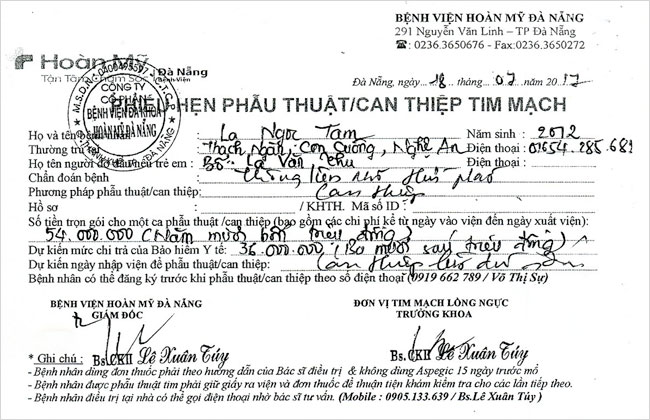 BỆNH VIỆN HOÀN MỸ ĐÀ NẴNG
291 Nguyễn Văn Linh – TP Đà Nẵng
☎: 0236.3650676 - Fax:0236.3650272
Hoàn Mỹ Đà Nẵng
Tận Tâm Chăm Sóc Bệnh Viện
M.S.D.N: 0400495597 C.T.C.P
CÔNG TY
CỔ PHẦN
BỆNH VIỆN ĐA KHOA
HOÀN MỸ ĐÀ NẴNG
Đà Nẵng, ngày 18 tháng 07 năm 2017
PHIẾU HẸN PHẪU THUẬT/CAN THIỆP TIM MẠCH
Họ và tên La Ngọc Tam Năm sinh : 2012
Thường trú Thạch Ngàn, Con Cuông, Nghệ An Điện thoại : 01654.285.681
Họ tên người trẻ em : Bố: La Văn Điện thoại :
Chẩn đoán bệnh : thông liên nhĩ
Phương pháp phẫu thuật/can thiệp: Can thiệp
Hồ sơ / KHTH. Mã số ID :
Số tiền trọn gói cho một ca phẫu thuật /can thiệp (bao gồm các chi phí kể từ ngày vào viện đến ngày xuất viện):
54.000.000 (Năm mươi bốn triệu đồng)
Dự kiến mức chi trả của Bảo hiểm Y tế: 36.000.000 (Ba mươi sáu triệu đồng)
Dự kiến ngày nhập viện để phẫu thuật/can thiệp: Can thiệp
Bệnh nhân có thể đăng ký trước khi phẫu thuật/can thiệp theo số điện thoại (0919 662 789 / Võ Thị Sự)
BỆNH VIỆN HOÀN MỸ ĐÀ NẴNG
GIÁM ĐỐC
ĐƠN VỊ TIM MẠCH LỒNG NGỰC
TRƯỞNG KHOA
Bs.CKII Lê Xuân Túy
Bs.CKII Lê Xuân Túy
* Ghi chú :
- Bệnh nhân dùng đơn thuốc phải theo hướng dẫn của Bác sĩ điều trị & không dùng Aspegic 15 ngày trước mổ
- Bệnh nhân được phẫu thuật tim phải giữ giấy ra viện và đơn thuốc để thuận tiện khám kiểm tra cho các lần tiếp theo.
- Bệnh nhân điều trị tại nhà có thể gọi điện thoại nhờ bác sĩ tư vấn. (Mobile : 0905.133.639 / Bs.Lê Xuân Túy )